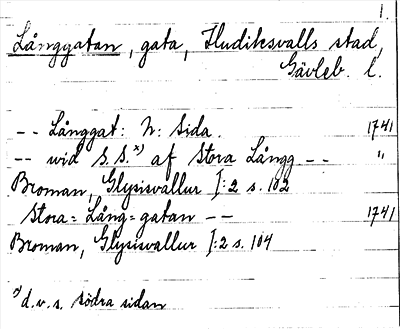 1.
Långgatan, gata, Hudiksvalls stad,
Gävleb. l.
-- Långgat: N: Sida. 1741
-- wid S. S.x) af Stora Långg -- "
Broman, Glysisvallur I:2 s. 102
Stora= Lång=gatan -- 1741
Broman, Glysisvallur I:2 s. 104
x) d.v.s. södra sidan